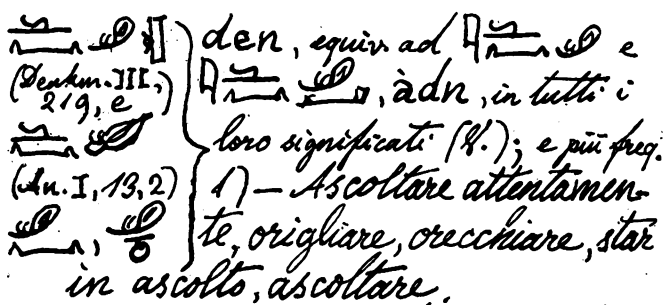 (Denkm. III,
219, e)
(An. I, 13, 2)
den, equiv. ad e
, àdn, in tutti i
loro significati (V.); e più freq.
1) — Ascoltare attentamen-
te, origliare, orecchiare, star
in ascolto, ascoltare.